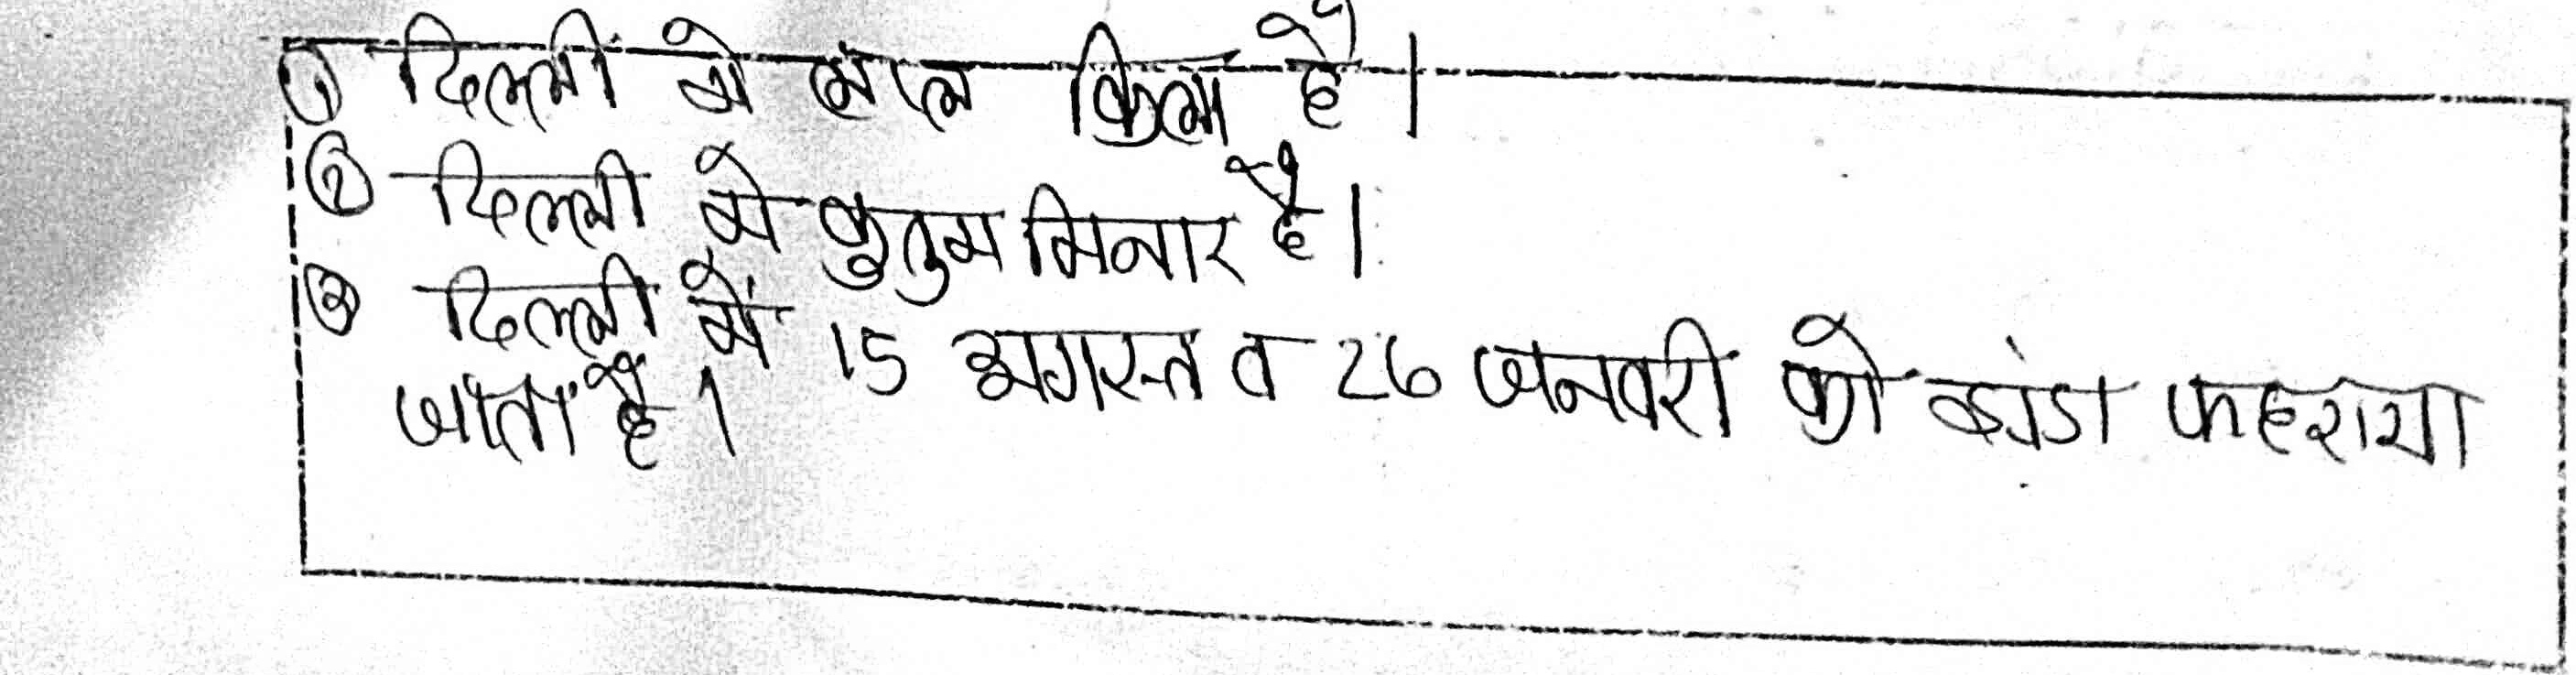 ① दिल्ली मे लाल किला है।
② दिल्ली मे कुतुम मिनार है।
③ दिल्ली में 15 अगस्त व 26 जनवरी को झंडा फहराया
जाता है।